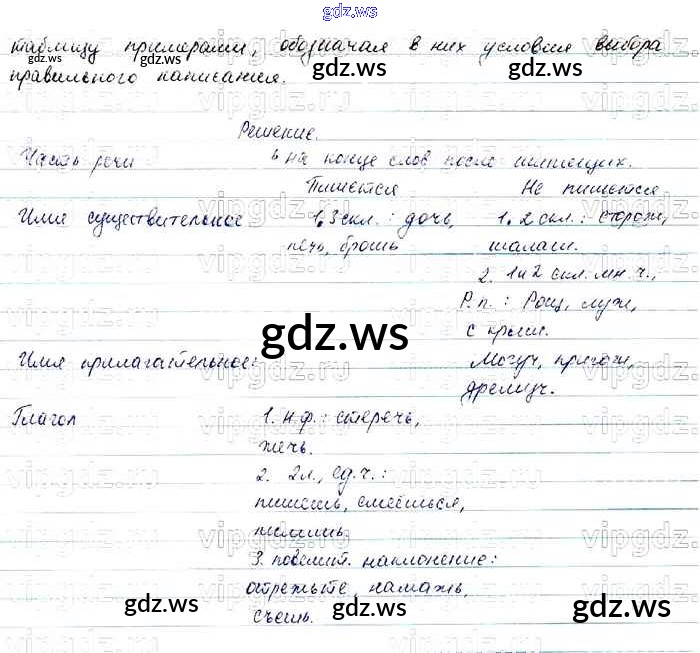 gdz.ws
таблицу примерами, обозначая в них условия выбора
gdz.ws gdz.ws gdz.ws
правильного написания.
Решение.
Часть речи ь на конце слов после шипящих.
Пишется Не пишется
Имя существительное 1. 3 скл.: дочь, 1. 2 скл.: сторож,
печь, брошь шалаш.
2. 1 и 2 скл. мн. ч.,
Р.п.: Рощ, луж,
gdz.ws
с крыш.
Имя прилагательное: Могуч, пригож,
дремуч.
Глагол 1. н.ф.: стеречь,
жечь.
2. 2 л., ед.ч.:
пишешь, смеёшься,
3. повелит. наклонение:
отрежьте, намажь,
gdz.ws gdz.ws gdz.ws
съешь.